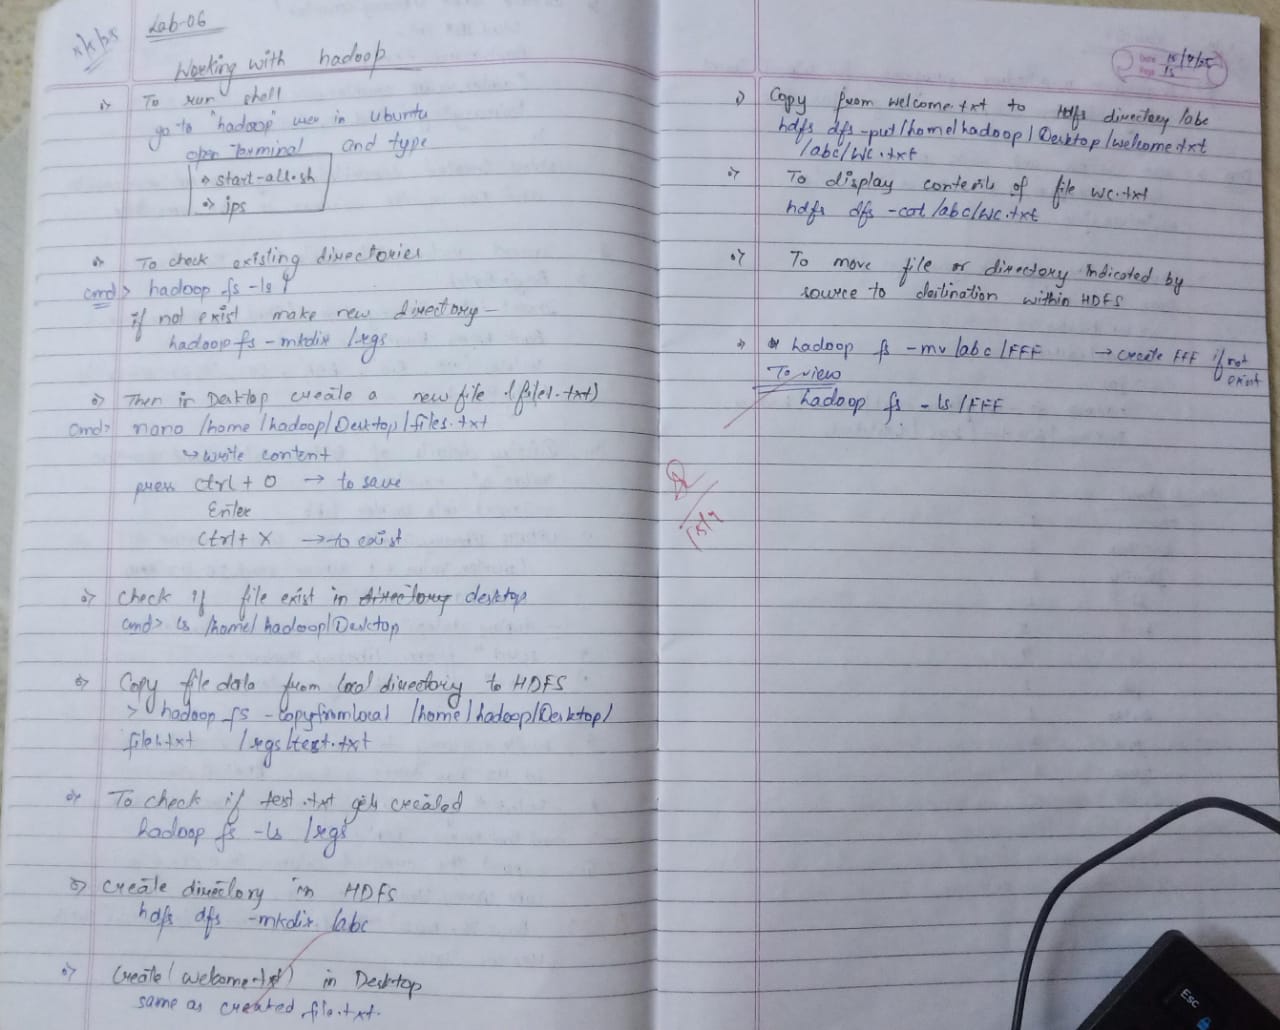 Lab-06
Working with hadoop
To run shell
go to "hadoop" user in ubuntu
open Terminal and type
start-all.sh
jps
To check existing directories
cmd> hadoop fs -ls /
if not exist make new directory-
hadoop fs -mkdir /rgs
Then in Desktop create a new file (file1.txt)
cmd> nano /home/hadoop/Desktop/file1.txt
↳ write content
press Ctrl + O → to save
Enter
Ctrl + X → to exist
check if file exist in desktop
cmd> ls /home/hadoop/Desktop
Copy file data from local directory to HDFS
> hadoop fs -copyfromlocal /home/hadoop/Desktop/
file1.txt /rgs/test.txt
To check if test.txt gets created
hadoop fs -ls /rgs
create directory in HDFS
hdfs dfs -mkdir /abc
Create (welcome.txt) in Desktop
same as created file.txt.
Date 15/4/25
Page 15
Copy from welcome.txt to Hdfs directory /abc
hdfs dfs -put /home/hadoop/Desktop/welcome.txt
/abc/wc.txt
To display contents of file wc.txt
hdfs dfs -cat /abc/wc.txt
To move file or directory indicated by
source to destination within HDFS
hadoop fs -mv /abc /FFF → create FFF if not
exist
To view
hadoop fs -ls /FFF
15/4
Esc